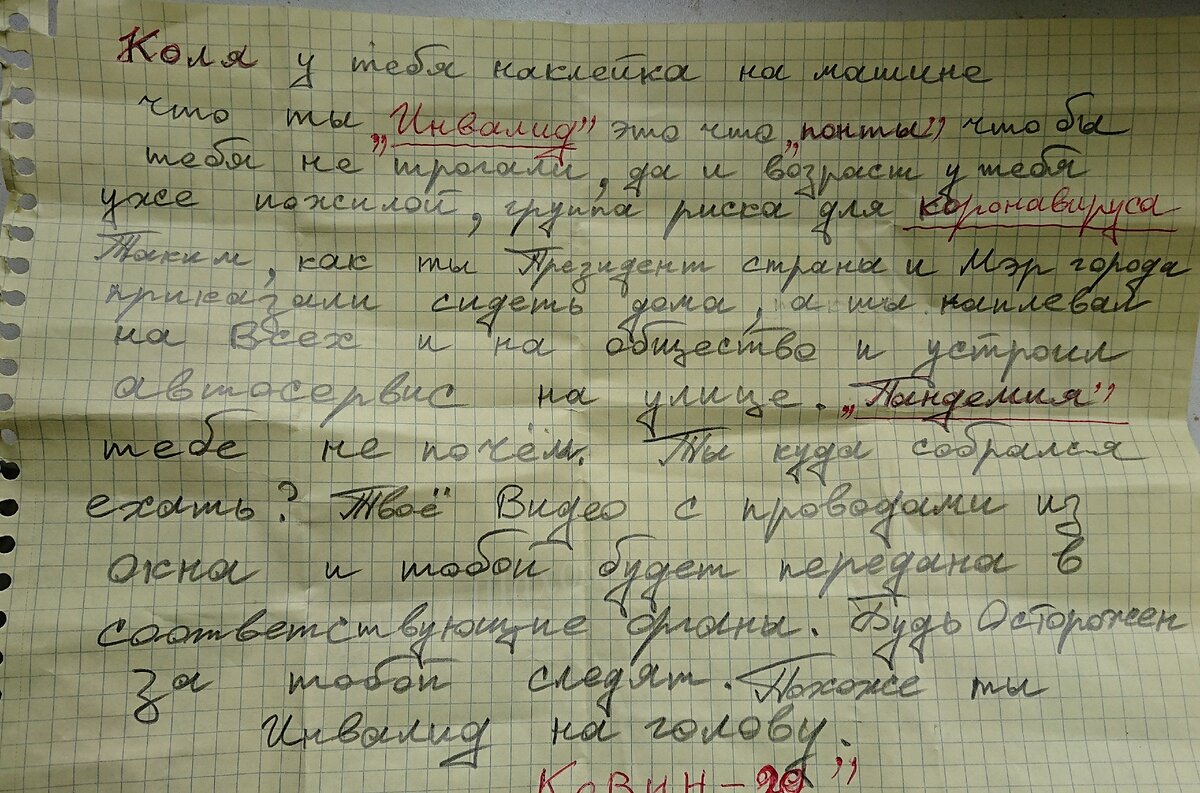 Коля у тебя наклейка на машине
что ты „Инвалид” это что „понты” что бы
тебя не трогали, да и возраст у тебя
уже пожилой, группа риска для коронавируса
Таким, как ты Президент страны и Мэр города
приказали сидеть дома, а ты наплевал
на Всех и на общество и устроил
автосервис на улице. „Пандемия”
тебе не почём. Ты куда собрался
ехать? Твоё Видео с проводами из
окна и тобой будет передана в
соответствующие органы. Будь Осторожен
за тобой следят. Похоже ты
Инвалид на голову.